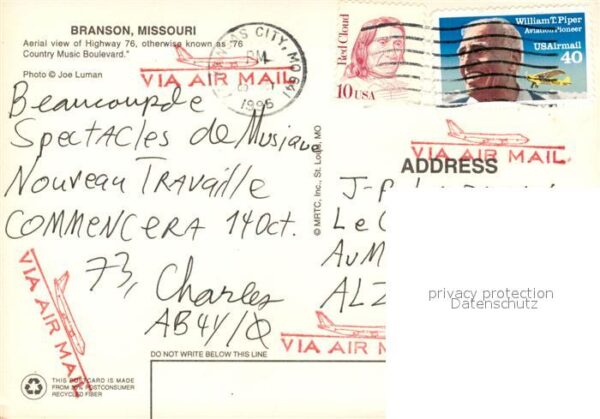 BRANSON, MISSOURI
Aerial view of Highway 76, otherwise known as "76
Country Music Boulevard."
Photo © Joe Luman
VIA AIR MAIL
KANSAS CITY, MO 641
PM
1995
Red Cloud
10 USA
William T. Piper
Aviation Pioneer
USAirmail
40
Beaucoup de
Spectacles de Musique
Nouveau Travaille
COMMENCERA 14 Oct.
73, Charles
AB4Y/Ø
VIA AIR MAIL
ADDRESS
J-P
Le
AUM
ALZ
privacy protection
Datenschutz
VIA AIR MAIL
VIA AIR MAIL
© MRTC, Inc., St. Louis, MO
DO NOT WRITE BELOW THIS LINE
THIS POSTCARD IS MADE
FROM 50% POSTCONSUMER
RECYCLED FIBER